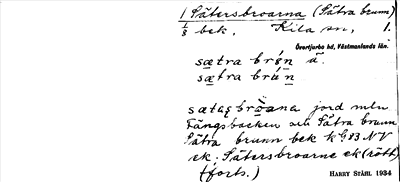 1 Sätersbroarna (Sätra brunn)
1/3 bek. Kila sn, 1.
Övertjurbo hd, Västmanlands län.
sætra
sætra
jord mln
Fängsbacken och Sätra brunn
Sätra brunn bek kG 83 NV
ek. Sätersbroarne ek (rött)
(forts.) HARRY STÅHL 1934